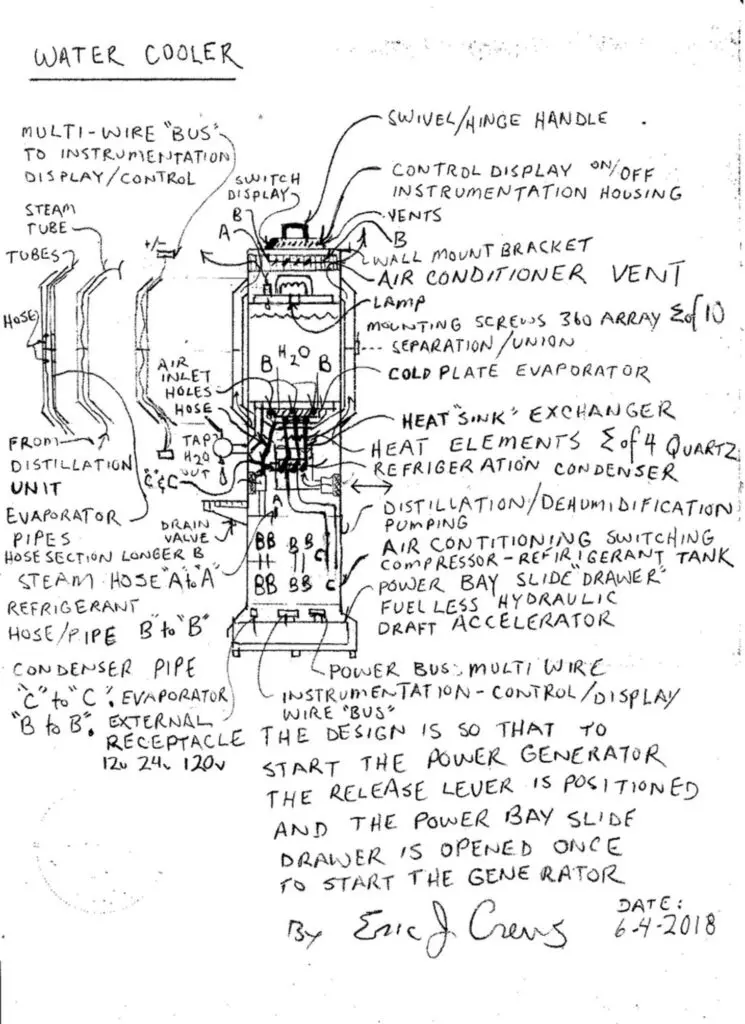 WATER COOLER
MULTI-WIRE "BUS"
TO INSTRUMENTATION
DISPLAY/CONTROL
SWITCH
DISPLAY
B
A
STEAM
TUBE
TUBES
+/-
HOSE
SWIVEL/HINGE HANDLE
CONTROL DISPLAY ON/OFF
INSTRUMENTATION HOUSING
VENTS
B
WALL MOUNT BRACKET
AIR CONDITIONER VENT
LAMP
MOUNTING SCREWS 360 ARRAY Σ of 10
SEPARATION/UNION
COLD PLATE EVAPORATOR
HEAT "SINK" EXCHANGER
HEAT ELEMENTS Σ of 4 QUARTZ
REFRIGERATION CONDENSER
DISTILLATION/DEHUMIDIFICATION
PUMPING
AIR CONTITIONING SWITCHING
COMPRESSOR-REFIRIGERANT TANK
POWER BAY SLIDE "DRAWER"
FUELLESS HYDRAULIC
DRAFT ACCELERATOR
H2O
B B
AIR
INLET
HOLES
HOSE
TAP
H2O
OUT
"C" & C
A
DRAIN
VALVE
BB B B C
BB BB C
FROM
DISTILLATION
UNIT
EVAPORATOR
PIPES
HOSE SECTION LONGER B
STEAM HOSE "A" to "A"
REFRIGERANT
HOSE/PIPE B" to "B"
CONDENSER PIPE
"C" to "C". EVAPORATOR
"B to B". EXTERNAL
RECEPTACLE
12v 24v 120v
POWER BUS: MULTI WIRE
INSTRUMENTATION-CONTROL/DISPLAY
WIRE "BUS"
THE DESIGN IS SO THAT TO
START THE POWER GENERATOR
THE RELEASE LEVER IS POSITIONED
AND THE POWER BAY SLIDE
DRAWER IS OPENED ONCE
TO START THE GENERATOR
By Eric J Crews
DATE:
6-4-2018